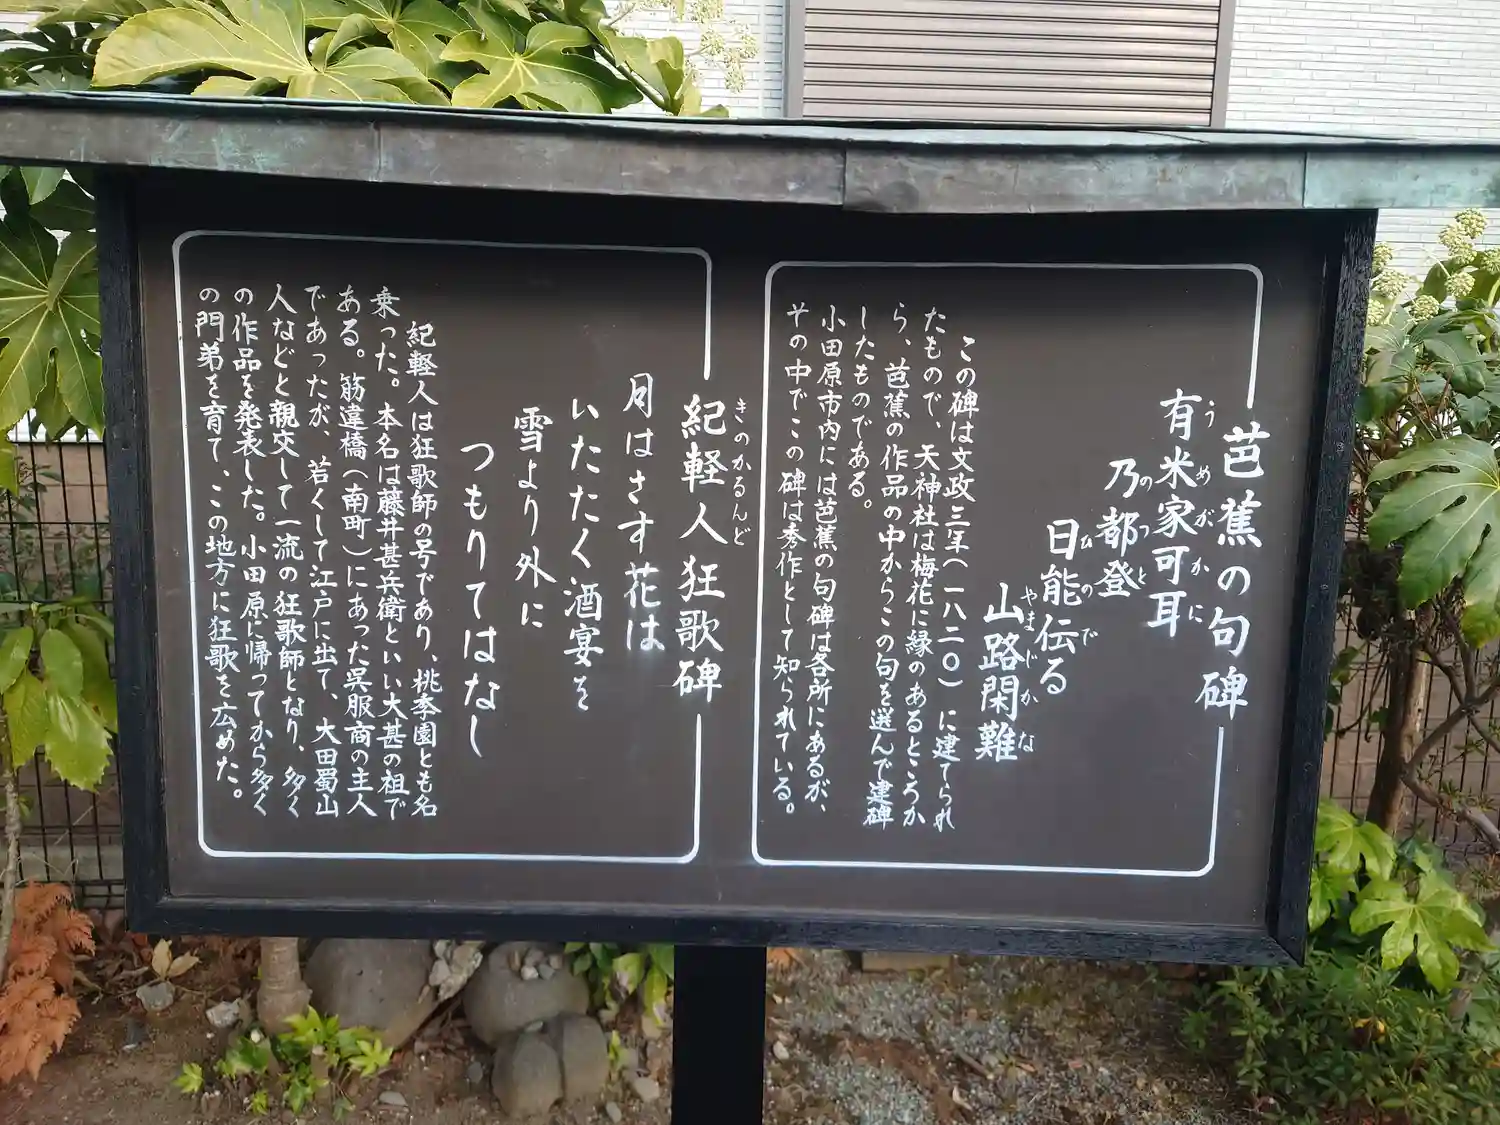 芭蕉の句碑
有米家可耳
うめがかに
乃都登
のつと
日能伝る
ひのでる
山路閑難
やまじかな
この碑は文政三年(一八二〇)に建てられ
たもので、天神社は梅花に縁のあるところか
ら、芭蕉の作品の中からこの句を選んで建碑
したものである。
小田原市内には芭蕉の句碑は各所にあるが、
その中でこの碑は秀作として知られている。
紀軽人狂歌碑
きのかるんど
月はさす花は
いたたく酒宴を
雪より外に
つもりてはなし
紀軽人は狂歌師の号であり、桃季園とも名
乗った。本名は藤井甚兵衛といい大甚の祖で
ある。筋違橋(南町)にあった呉服商の主人
であったが、若くして江戸に出て、大田蜀山
人などと親交して一流の狂歌師となり、多く
の作品を発表した。小田原に帰ってから多く
の門弟を育て、この地方に狂歌を広めた。